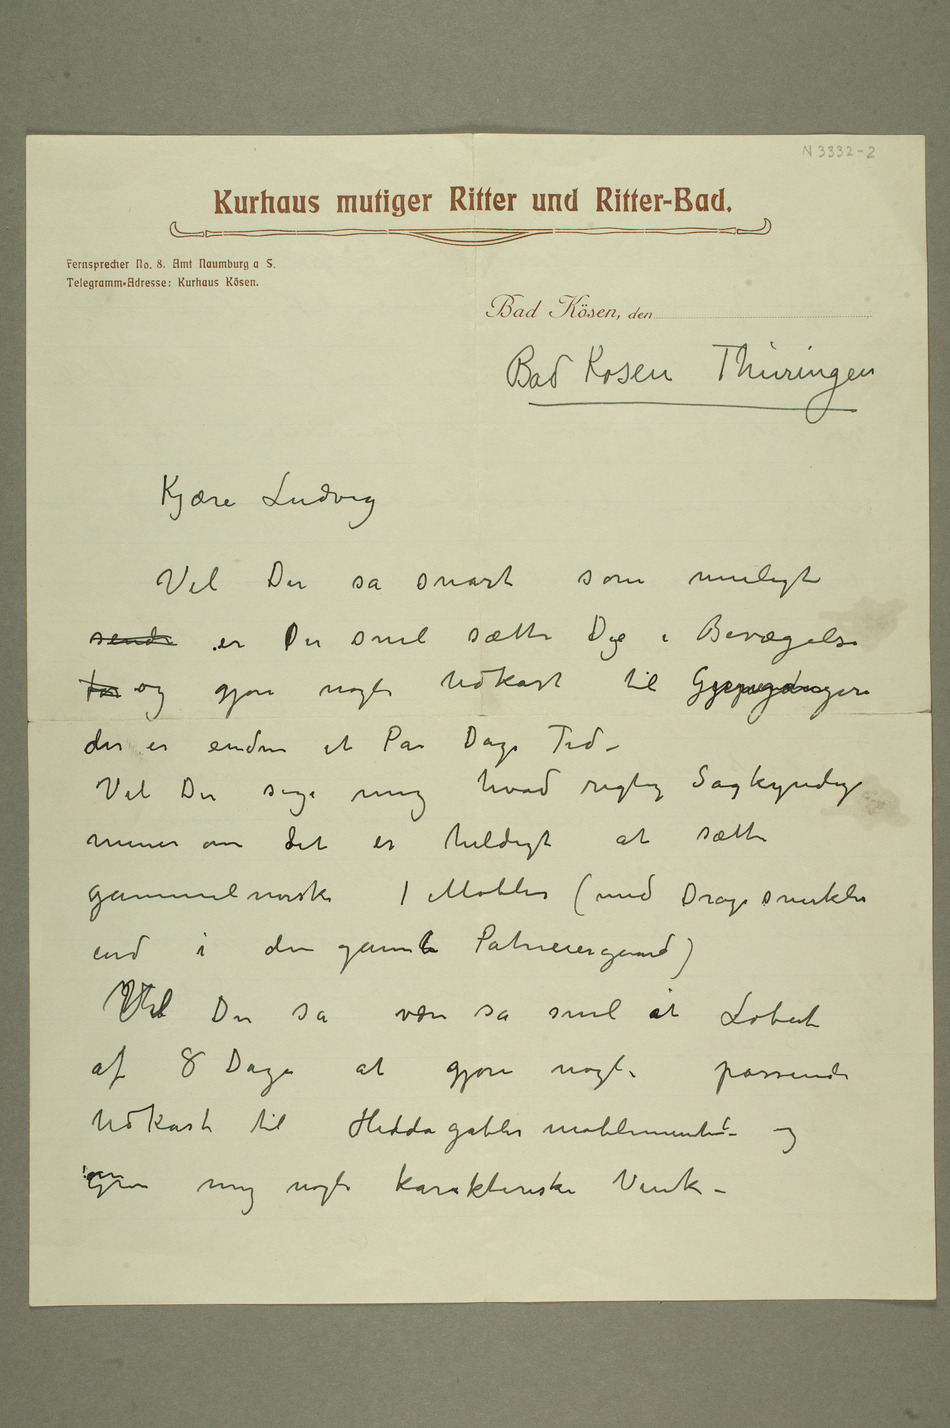 N 3332-2
Kurhaus mutiger Ritter und Ritter-Bad.
Fernsprecher No. 8. Amt Naumburg a S.
Telegramm-Adresse: Kurhaus Kösen.
Bad Kösen, den
Bad Kosen Thüringen
Kjære Ludvig
Vil Du sa snart som muligt
sende er Du snil sætte Dig i Bevægelse
for og gjøre nogle Udkast til
der er endnu et Par Dage Tid –
Vil Du sige mig hvad rigtig Sagkyndige
mener om det er heldigt at sætte
gammelnorske Møbler (med Dragesnirkler
end i den gamle Patriciergaard)
Vil Du sa være sa snil at Løbet
af 8 Dage at gjøre nogle passende
Udkast til Hedda gabler møblementet – og
give mig nogle karakteriske Vink –